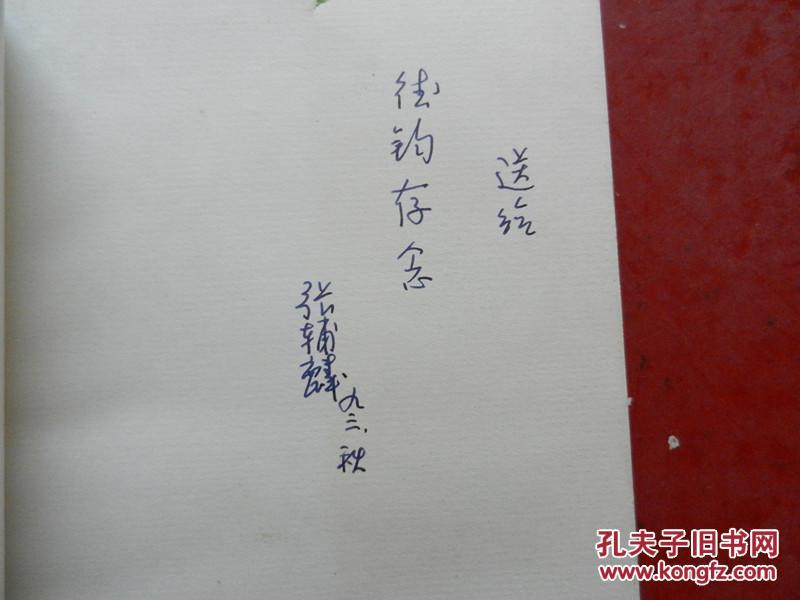 送给
德钧存念
张辅麟
九三.秋
孔夫子旧书网
www.kongfz.com